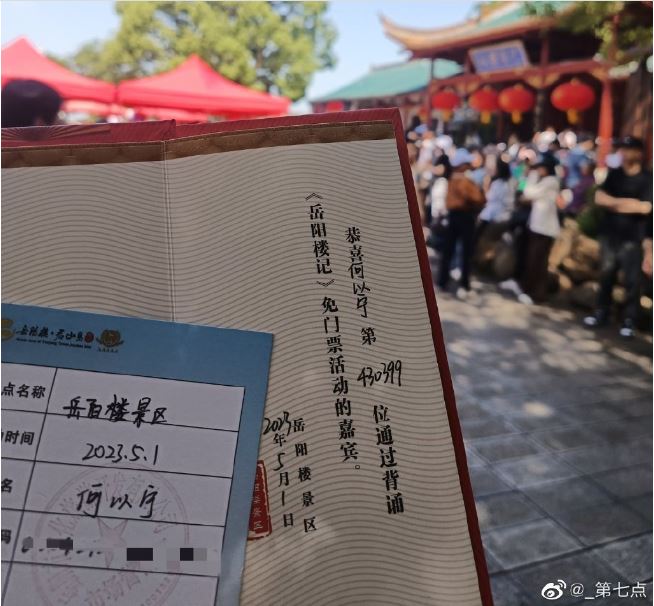 恭喜何以宁 第 430399 位通过背诵
《岳阳楼记》免门票活动的嘉宾。
岳阳楼景区
2023年5月1日
岳阳楼·君山岛
点名称
岳阳楼景区
时间
2023.5.1
名
何以宁
码
@_第七点